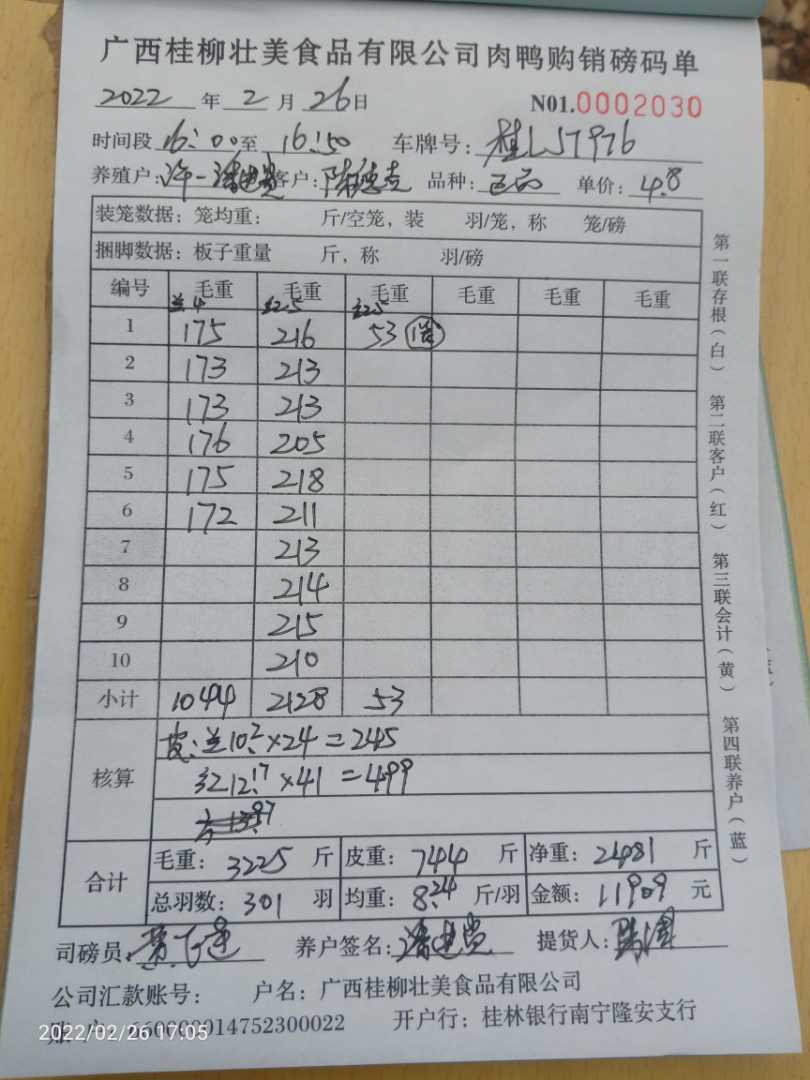 广西桂柳壮美食品有限公司肉鸭购销磅码单
2022 年 2 月 26日
N01.0002030
时间段 16:00至 16:50 车牌号: 桂L57976
养殖户: 许一潘 客户: 陈 品种: 正品 单价: 4.8
装笼数据: 笼均重: 斤/空笼, 装 羽/笼, 称 笼/磅
捆脚数据: 板子重量 斤, 称 羽/磅
编号 毛重 毛重 毛重 毛重 毛重 毛重
兰4 红2.5 红2.5
1 175 216 53
2 173 213
3 173 213
4 176 205
5 175 218
6 172 211
7 213
8 214
9 215
10 210
小计 1044 2128 53
核算
皮: 兰10.2×24=245
红12.17×41=499
合计
毛重: 3225 斤 皮重: 744 斤 净重: 2481 斤
总羽数: 301 羽 均重: 8.24 斤/羽 金额: 11909 元
司磅员: 养户签名: 潘 提货人:
公司汇款账号: 户名: 广西桂柳壮美食品有限公司
开户行: 桂林银行南宁隆安支行
2022/02/26 17:05
14752300022
第一联存根(白) 第二联客户(红) 第三联会计(黄) 第四联养户(蓝)